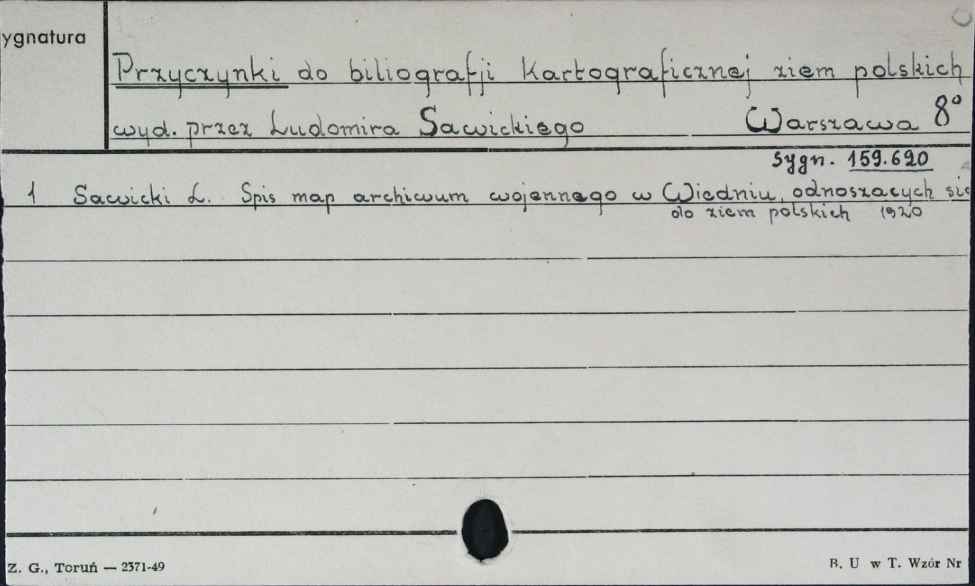 ygnatura
Przyczynki do biliografji Kartograficznej ziem polskich
wyd. przez Ludomira Sawickiego Warszawa 8°
Sygn. 159.620
1 Sawicki L. Spis map archiwum wojennego w Wiedniu, odnoszących się
do ziem polskich 1920
Z. G., Toruń — 2371-49
B. U w T. Wzór Nr